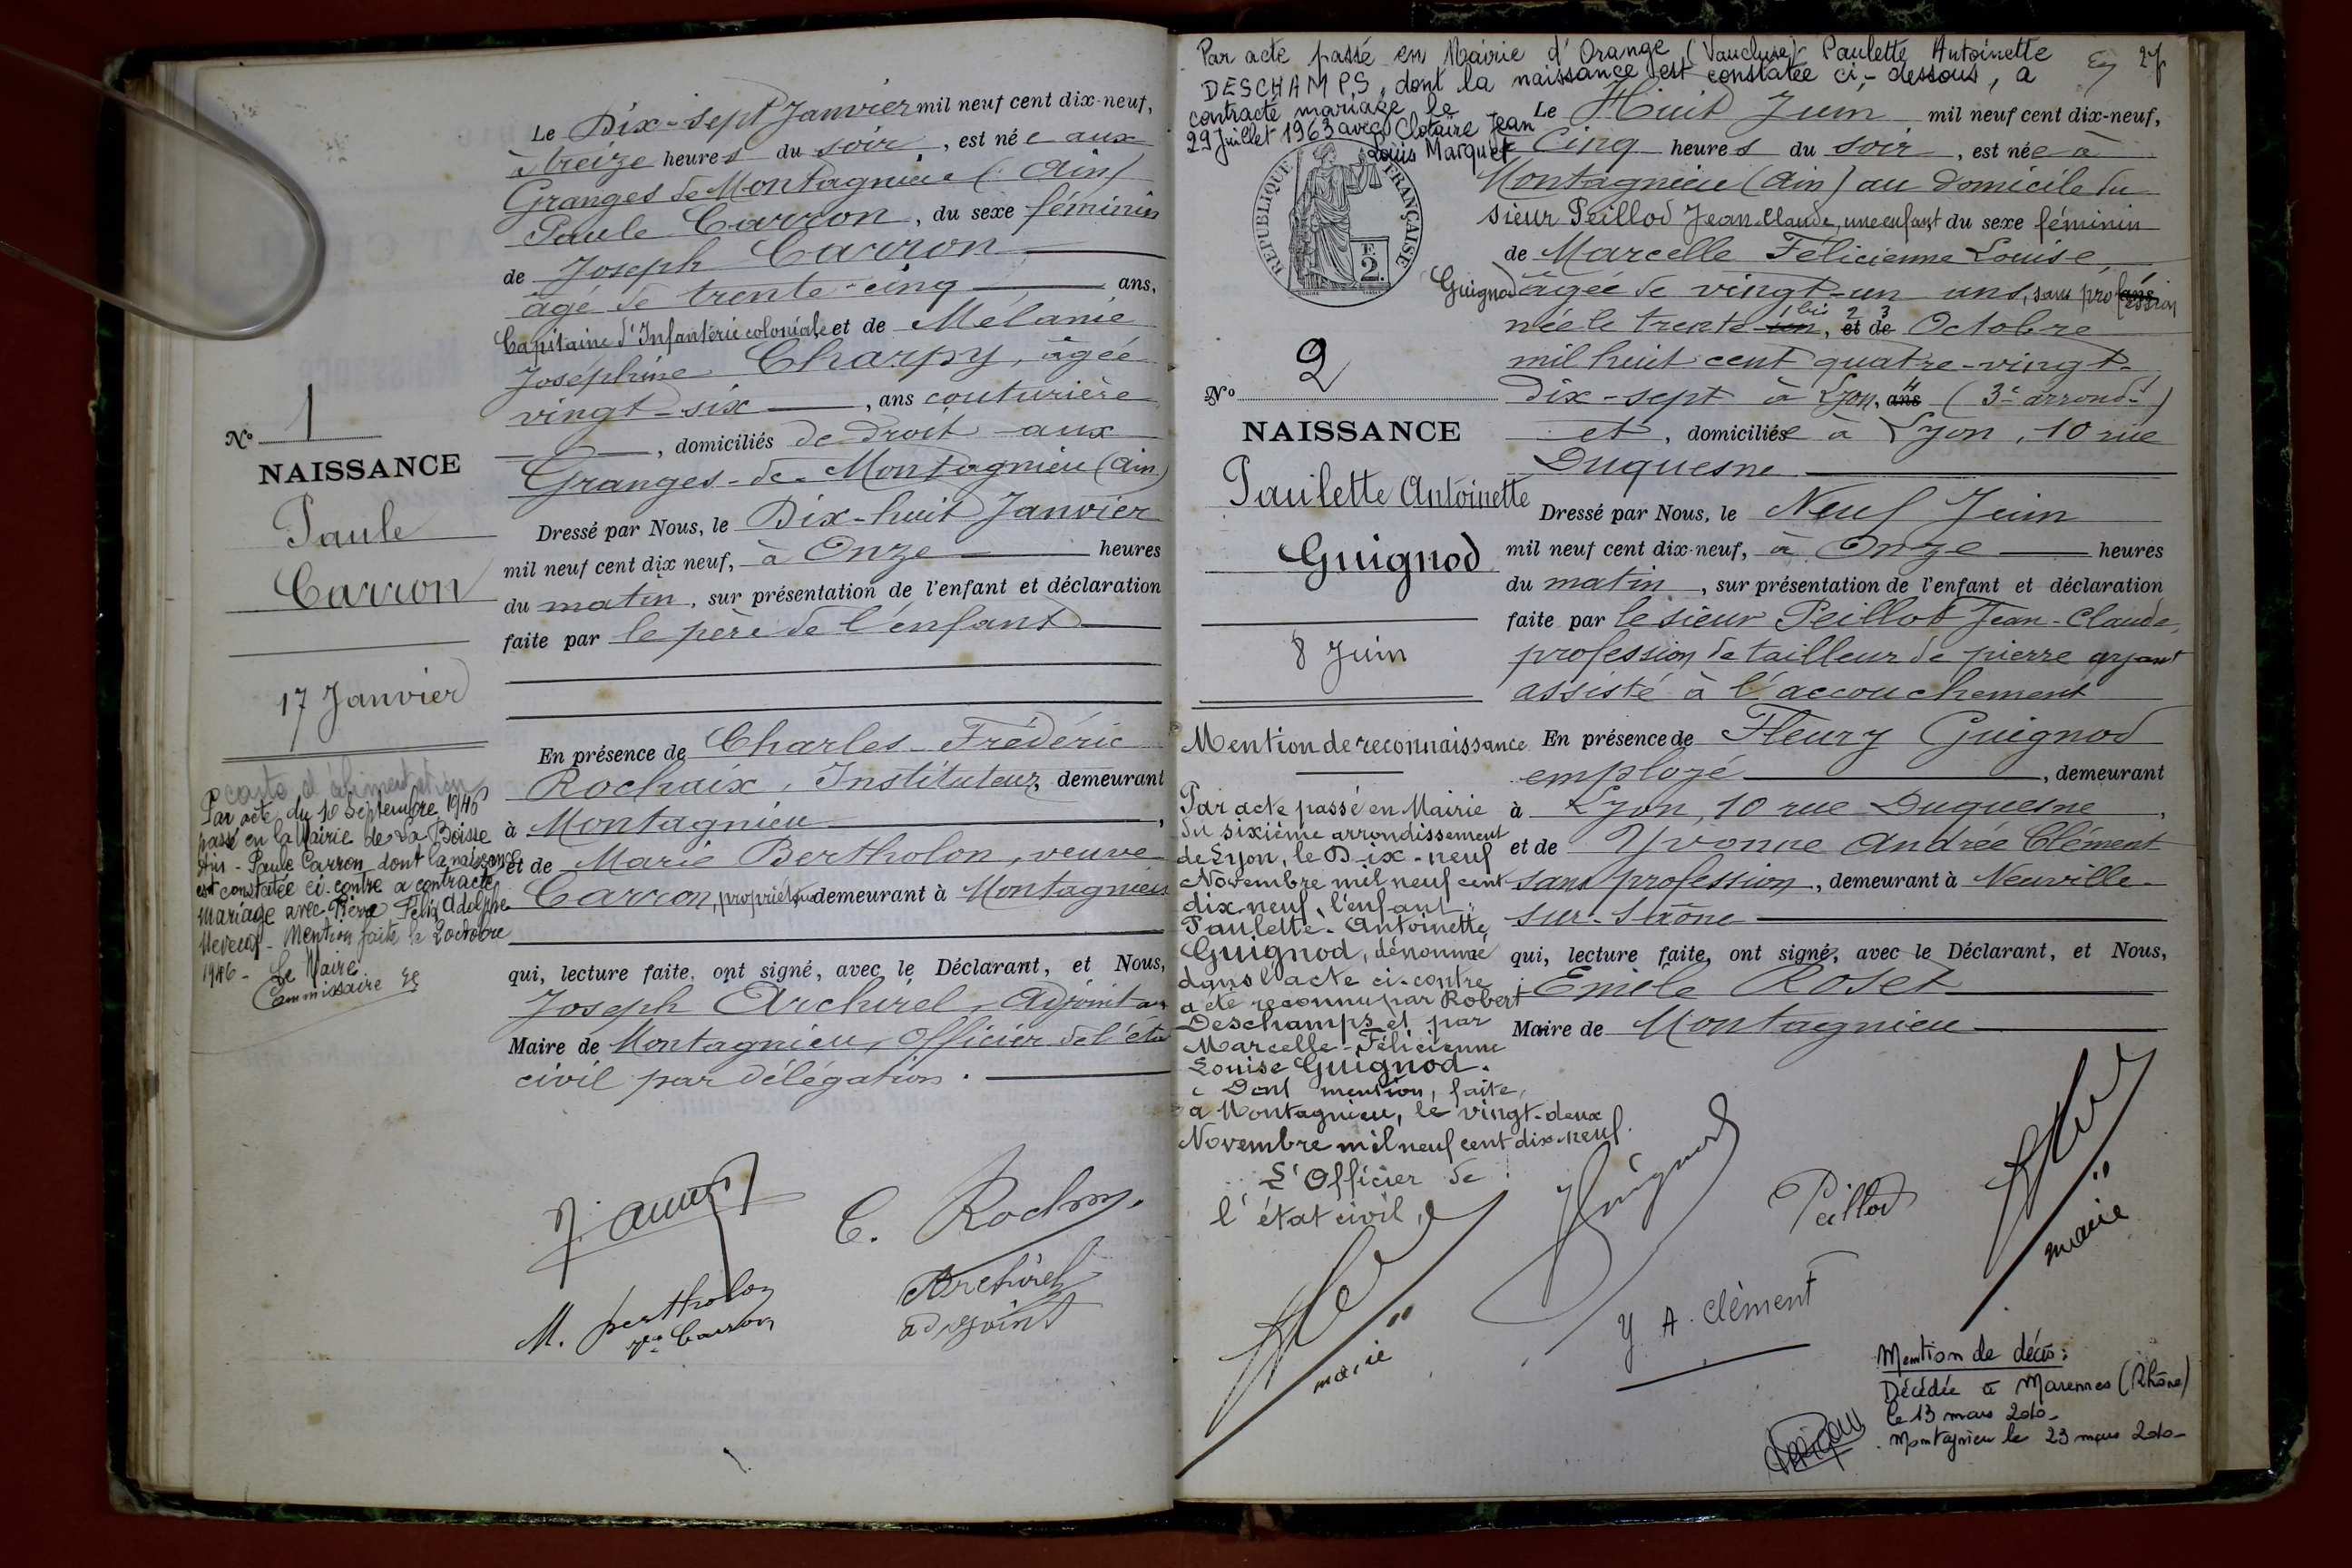 Le Dix-sept Janvier mil neuf cent dix-neuf,
à treize heures du soir, est née aux
Granges de Montagnieu (Ain)
Paule Carron, du sexe féminin
de Joseph Carron
âgé de trente-cinq ans,
Capitaine d'Infanterie coloniale et de Mélanie
Joséphine Charpy, âgée
vingt-six, ans couturière
, domiciliés de droit aux
Granges-de-Montagnieu (Ain)
Dressé par Nous, le Dix-huit Janvier
mil neuf cent dix neuf, à Onze heures
du matin, sur présentation de l'enfant et déclaration
faite par le père de l'enfant
En présence de Charles Frédéric
Rochaix, Instituteur, demeurant
à Montagnieu,
et de Marie Bertholon, veuve
Carron, demeurant à Montagnieu
qui, lecture faite, ont signé, avec le Déclarant, et Nous,
Joseph Archirel, Adjoint au
Maire de Montagnieu, Officier de l'état
civil par délégation.
C. Roch
M. Bertholon
Vve Carron
Archirel
adjoint
No 1
NAISSANCE
Paule
Carron
17 Janvier
carte d'alimentation
Par acte du 10 Septembre 1946
passé en la Mairie de La Boisse
Ain - Paule Carron dont la naissance
est constatée ci-contre a contracté
mariage avec Pierre Félix Adolphe
Mention faite le 2 octobre
1946 - Le Maire
Commissaire
Par acte passé en Mairie d'Orange (Vaucluse) Paulette Antoinette
DESCHAMPS, dont la naissance est constatée ci-dessous, a
contracté mariage le
29 Juillet 1963 avec Clotaire Jean
Louis Marquet
27
RÉPUBLIQUE FRANÇAISE
F.
2.
Le Huit Juin mil neuf cent dix-neuf,
à Cinq heures du soir, est née à
Montagnieu (Ain) au domicile du
sieur Peillod Jean-Claude, une enfant du sexe féminin
de Marcelle Félicienne Louise,
Guignod âgée de vingt-un ans, sans profession
née le trente-un, et de Octobre
mil huit cent quatre-vingt-
Dix-sept à Lyon, ans (3e arrondt)
et, domiciliée à Lyon, 10 rue
Duquesne
Dressé par Nous, le Neuf Juin
mil neuf cent dix-neuf, à Onze heures
du matin, sur présentation de l'enfant et déclaration
faite par le sieur Peillod Jean-Claude,
profession de tailleur de pierre ayant
assisté à l'accouchement
En présence de Fleury Guignod
employé, demeurant
à Lyon, 10 rue Duquesne,
et de Yvonne Andrée Clément
sans profession, demeurant à Neuville-
sur-Saône
qui, lecture faite, ont signé, avec le Déclarant, et Nous,
Emile Roset
Maire de Montagnieu
No 2
NAISSANCE
Paulette Antoinette
Guignod
8 Juin
Mention de reconnaissance
Par acte passé en Mairie
du sixième arrondissement
de Lyon, le Dix-neuf
Novembre mil neuf cent
dix-neuf, l'enfant
Paulette-Antoinette
Guignod, dénommé
dans l'acte ci-contre
a été reconnu par Robert
Deschamps et par
Marcelle-Félicienne
Louise Guignod.
Dont mention, faite,
à Montagnieu, le vingt-deux
Novembre mil neuf cent dix-neuf.
L'Officier de
l'état civil,
maire
Guignod
Peillod
Y A. Clément
maire
Mention de décès :
Décédée à Marennes (Rhône)
le 13 mars 2010-
Montagnieu le 23 mars 2010-